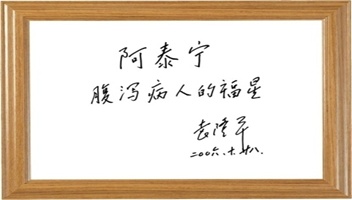 阿泰宁
腹泻病人的福星
袁隆平
二〇〇六.十.廿八.